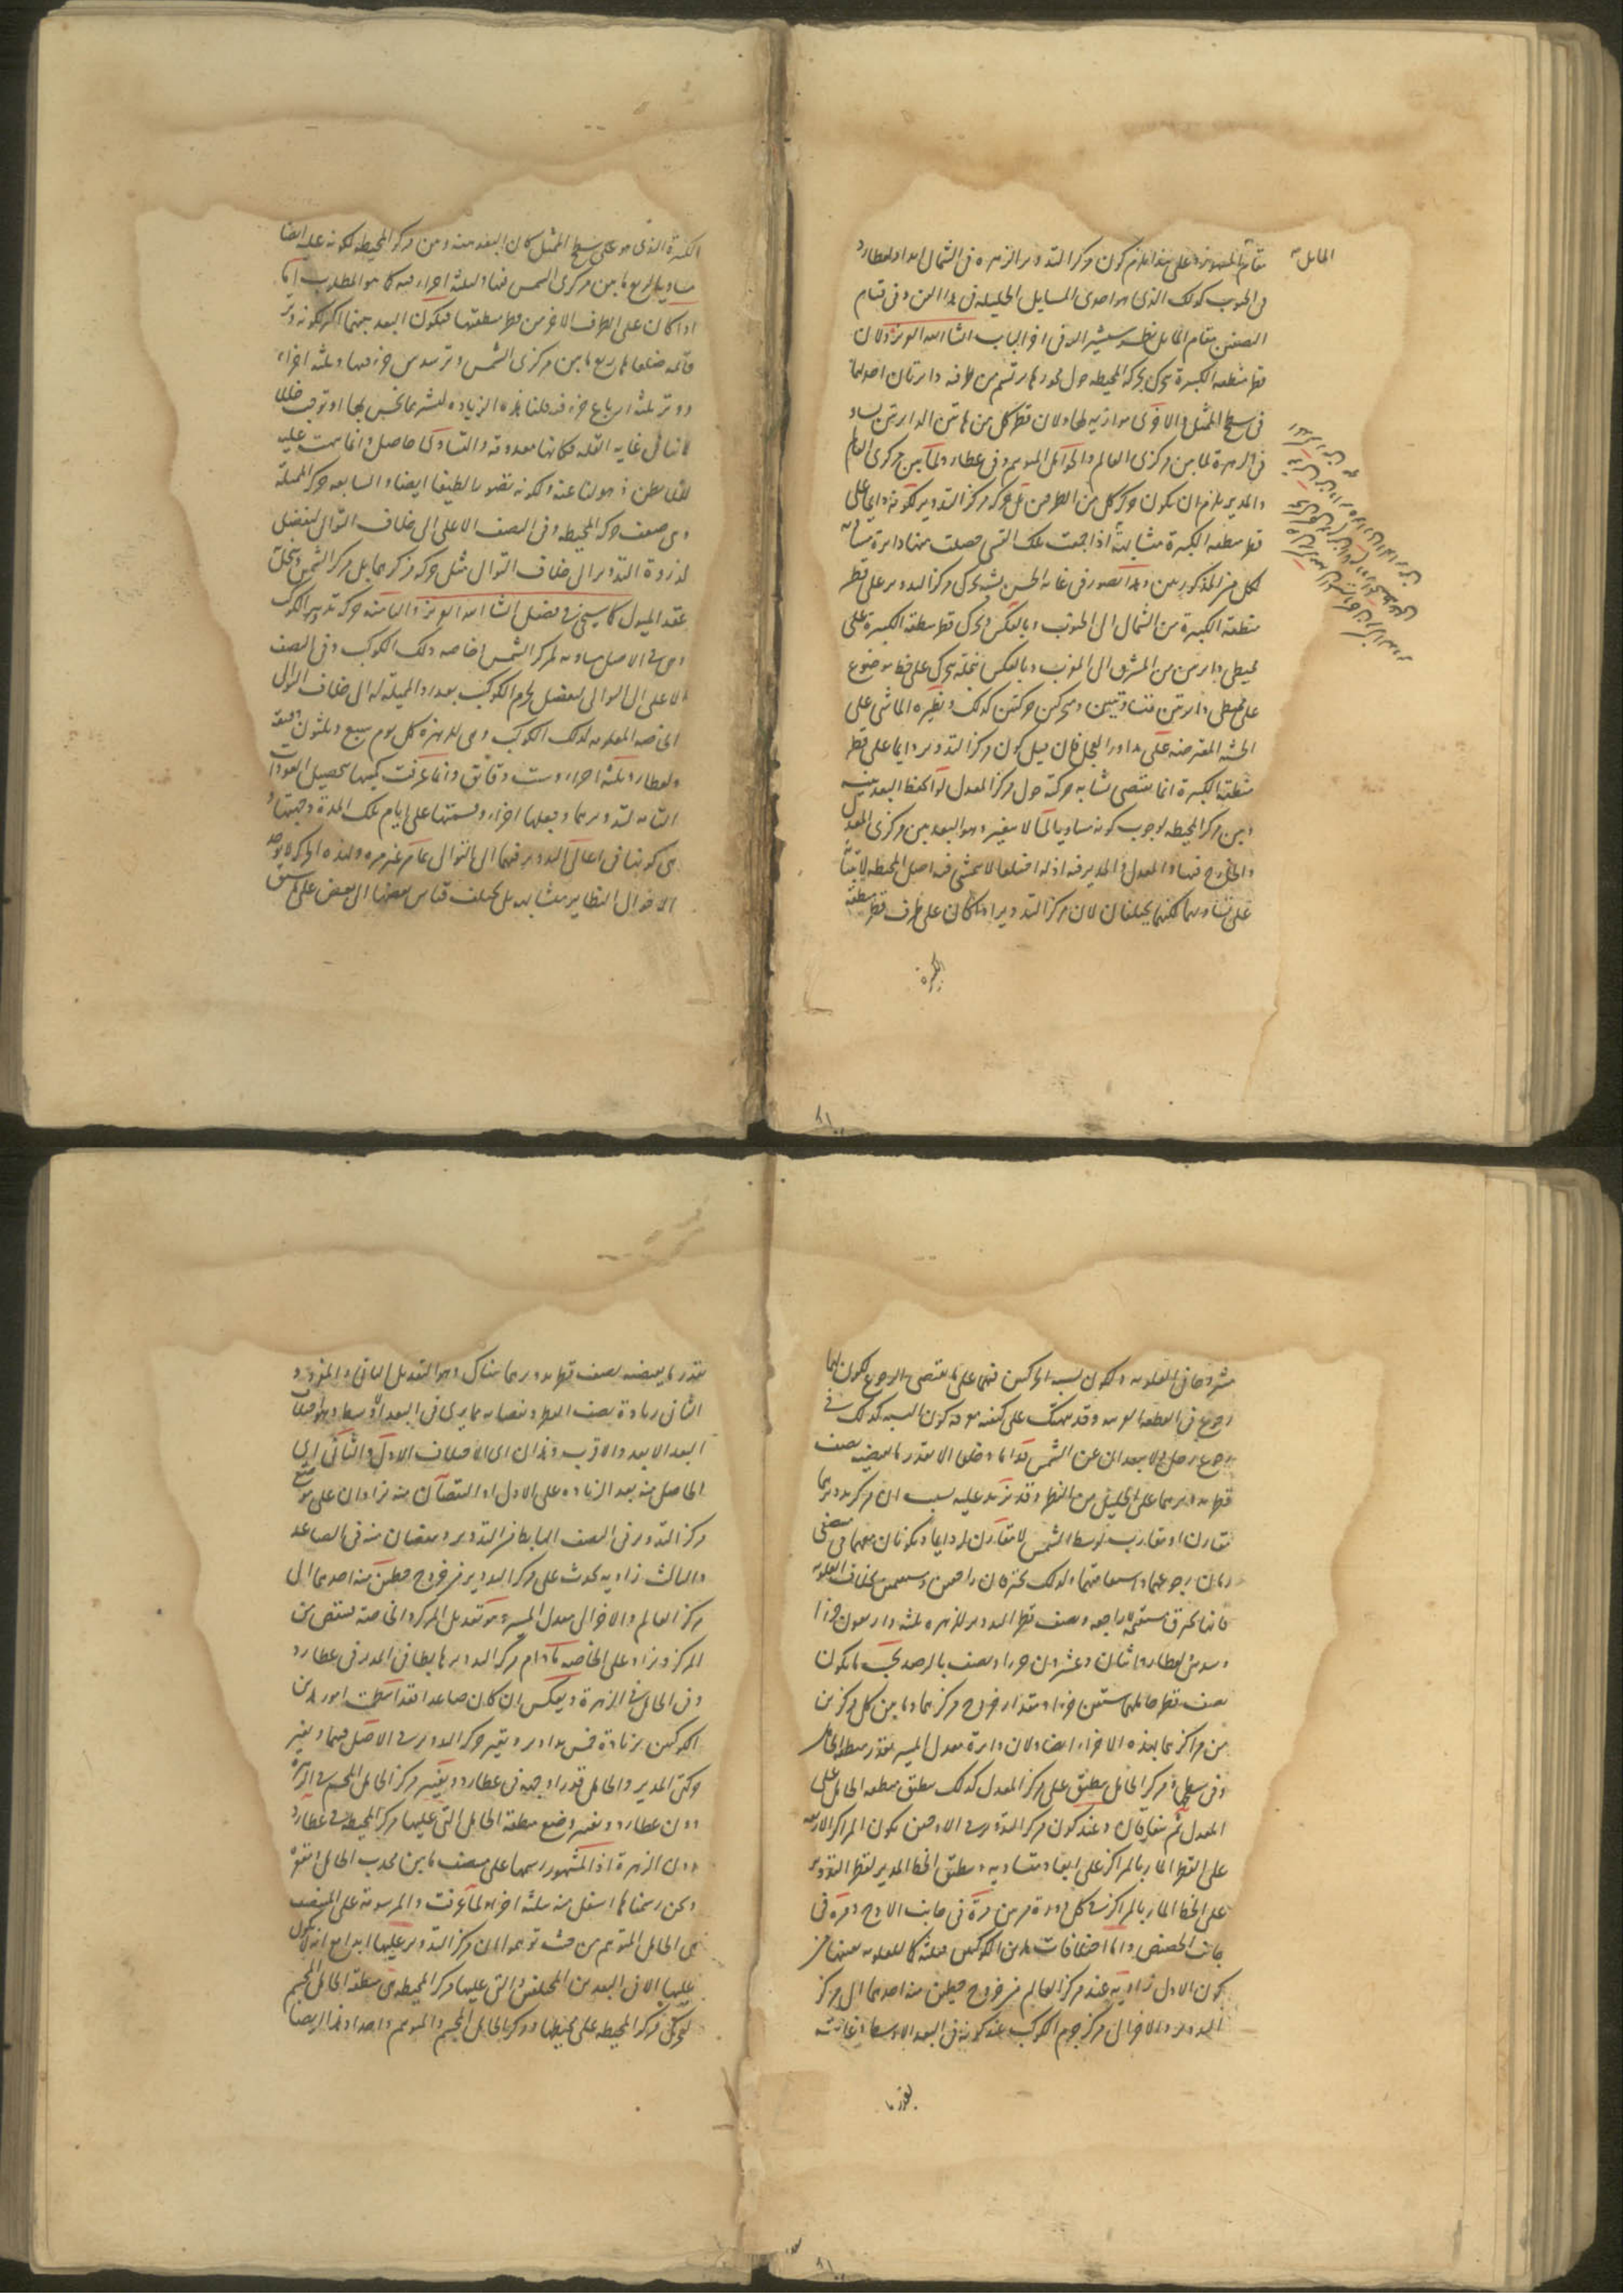 المايل
مقام المفروضة وعلى هذا يلزم كون مركز التدوير الزهرة فى الشمال ابدا ولعطارد
فى الجنوب كذلك الذى هو احدى المسايل الجليلة فى هذا الفن وفى قيام
النصفين مقام المايل نظر سنشير اليه فى اخر الباب ان شاء الله العزيز ولان
قطر منطقة الكبيرة يتحرك بحركة المحيطة حول محورها يرتسم من طرفيه دايرتان احديهما
فى سطح الممثل والاخرى موازية لها ولان قطر كل من هاتين الدايرتين يساوى
فى الزهرة لما بين مركزى العالم والحامل المتوهم وفى عطارد لما بين مركزى العالم
والمدير يلزم ان يكون حركة كل من الطرفين مثل حركة مركز التدوير لكونه دايما على
قطر منطقة الكبيرة متشابهة اذا اجتمعت تلك القسى حصلت منها دايرة
لكل من المذكورين وهذا تصور فى غاية الحسن يتحرك مركز التدوير على قطر
منطقة الكبيرة من الشمال الى الجنوب وبالعكس وتحرك قطر منطقة الكبيرة على
محيطى دايرتين من المشرق الى المغرب وبالعكس كنملة تتحرك على خط موضوع
على محيطى دايرتين متساويتين ومتحركتين حركتين كذلك ونظيره الماشى على
الخشبة المعترضة على مدار العجل فان قيل كون مركز التدوير دايما على قطر
منطقة الكبيرة انما يقتضى تشابه حركته حول مركز المعدل لو انحفظ البعد بينه
وبين مركز المحيطة لوجوب كونه مساويا لما لا يتغير وهو البعد بين مركزى المعدل
والخارج فيها والمعدل والمدير فيه اذ لو اختلفا لا يتمشى فيه اصل المحيطة
على تساويهما لكنهما يختلفان لان مركز التدوير اذا كان على طرف قطر منطقة
الكبيرة
الكبيرة الذى هو على سطح الممثل كان البعد بينه وبين مركز المحيطة لكونه عليه ايضا
مساويا لربع ما بين مركزى الشمس فيها ولثلثة اجزاء فيه كما هو المطلوب اما
اذا كان على الطرف الاخر من قطر منطقتها فيكون البعد بينهما اكثر لكونه وتر
قائمة ضلعاها ربع ما بين مركزى الشمس وتر سدس جزء فيها وثلثة اجزاء
ووتر ثلثة ارباع جزء فيه قلنا هذه الزيادة ليست مما تحس بها او توقع خللا
لانها فى غاية القلة فكانها معدومة والتساوى حاصل وانما نبهت عليه
لئلا يظن ذهولنا عنه ولكونه تصورا لطيفا ايضا والسابعة حركة المميلة
وهى ضعف حركة المحيطة وفى النصف الاعلى الى خلاف التوالى ليفضل
لذروة التدوير الى خلاف التوالى مثل حركة مركزيهما بل مركز الشمس
عقد الميول كما سيجئ فى فصل ان شاء الله العزيز والثامنة حركة تدوير الكوكب
وهى فى الاصل مساوية لمركز الشمس وخاصة ذلك الكوكب وفى النصف
الاعلى الى التوالى ليفضل لجرم الكوكب بعد رد المميلة له الى خلاف التوالى
الخاصة المعلومة لذلك الكوكب وهى للزهرة كل يوم سبع وثلثون دقيقة
ولعطارد ثلثة اجزاء وست دقائق وانما عرفت كميتها بتحصيل العودات
التامة لتدويريهما وجعلها اجزاء وقسمتها على ايام تلك المدة وجهتها
من كونها فى اعالى التدوير فيهما الى التوالى بما مر غير مرة وبهذه الحركة لا يوجد
الاحوال النظاير متشابهة بل يختلف قياس بعضها الى بعض على ما سبق
مشروحا فى العلوية ولكون نسبة الحركتين فيهما على ما يقتضى الرجوع يكون لهما
رجوع فى القطعة القريبة وقد نبهتك على كيفية معرفة كون النسبة كذلك فى
رجوع زحل ولا يبعدان عن الشمس قداما وخلفا الا بقدر ما يقتضيه نصف
قطر تدويريهما على الجليل من النظر وقد تزيد عليه بسبب ان مركز تدويريهما
تقارن او تقارب لوسط الشمس لا تقارن له دايما ويكونان معها فى منتصفى
زمان رجوعهما واستقامتهما ولذلك يحترقان راجعين ومستقيمين بخلاف العلوية
فانها تحترق مستقيمة لا راجعة ونصف قطر التدوير للزهرة ثلثة واربعون جزءا
وسدس ولعطارد اثنان وعشرون جزءا ونصف بالرصد بحيث ما يكون
نصف قطر حامليهما ستين جزءا ومقدار خروج مركزيهما وما بين كل مركزين
من مراكزهما بهذه الاجزاء ايضا ولان دايرة معدل المسير بقدر منطقة الحامل
وفى سطحها فمركز الحامل ينطبق على مركز المعدل كذلك ينطبق منطقة الحامل على
المعدل ثم يتفارقان وعند كون مركز التدوير فى الاوجين يكون المراكز الاربعة
على القطر المار بالمراكز على ابعاد متساوية وينطبق الخط المدير لقطر التدوير
على الخط المار بالمراكز فى كل دورة مرتين مرة فى جانب الاوج ومرة فى
جانب الحضيض واما اختلافات هذين الكوكبين فثلثة كما للعلوية بعينها من
كون الاول زاوية عند مركز العالم من خروج خطين منه احدهما الى مركز
التدوير والاخر الى مركز جرم الكوكب عند كونه فى البعد الاوسط وغايته
بقدر ما
بقدر ما يقتضيه نصف قطر تدويريهما هناك وهو التعديل الثانى والمفرد و
الثانى زيادة نصف القطر ونقصانه مما يرى فى البعد الاوسط وهو اختلاف
البعد الابعد والاقرب وهذان اى الاختلاف الاول والثانى اى
الحاصل منه بعد الزيادة على الاول او النقصان منه يزادان على موضع
مركز التدوير فى النصف الهابط من التدوير وينقصان منه فى الصاعد
والثالث زاوية يحدث على مركز التدوير من خروج خطين منه احدهما الى
مركز العالم والاخر الى معدل المسير وهو تعديل المركز والخاصة ينقص من
المركز ويزاد على الخاصة ما دام مركز التدوير هابطا فى المدير فى عطارد
وفى الحامل فى الزهرة وبعكس ان كان صاعدا فقد استقامت امور هذين
الكوكبين بزيادة خمس مداوير وتغير حركة التدوير فى الاصل فيهما وتغير
حركتى المدير والحامل قدرا وجهة فى عطارد وتغير مركز الحامل المجسم فى الزهرة
دون عطارد وتغير وضع منطقة الحامل التى عليها مركز المحيطة فى عطارد
دون الزهرة اذ المشهور رسمها على منتصف ما بين محدب الحامل ومقعره
ونحن رسمناها اسفل منه بثلثة اجزاء لما عرفت والمرسومة على المنتصف
هى الحامل المتوهم من حيث توهم ان مركز التدوير عليها ابدا مع انه لا يكون
عليها الا فى البعدين المختلفين والتى عليها مركز المحيطة هى منطقة الحامل المجسم
لتحرك مركز المحيطة على محيطها ومركز الحامل المجسم والمتوهم واحد وهذا ايضا